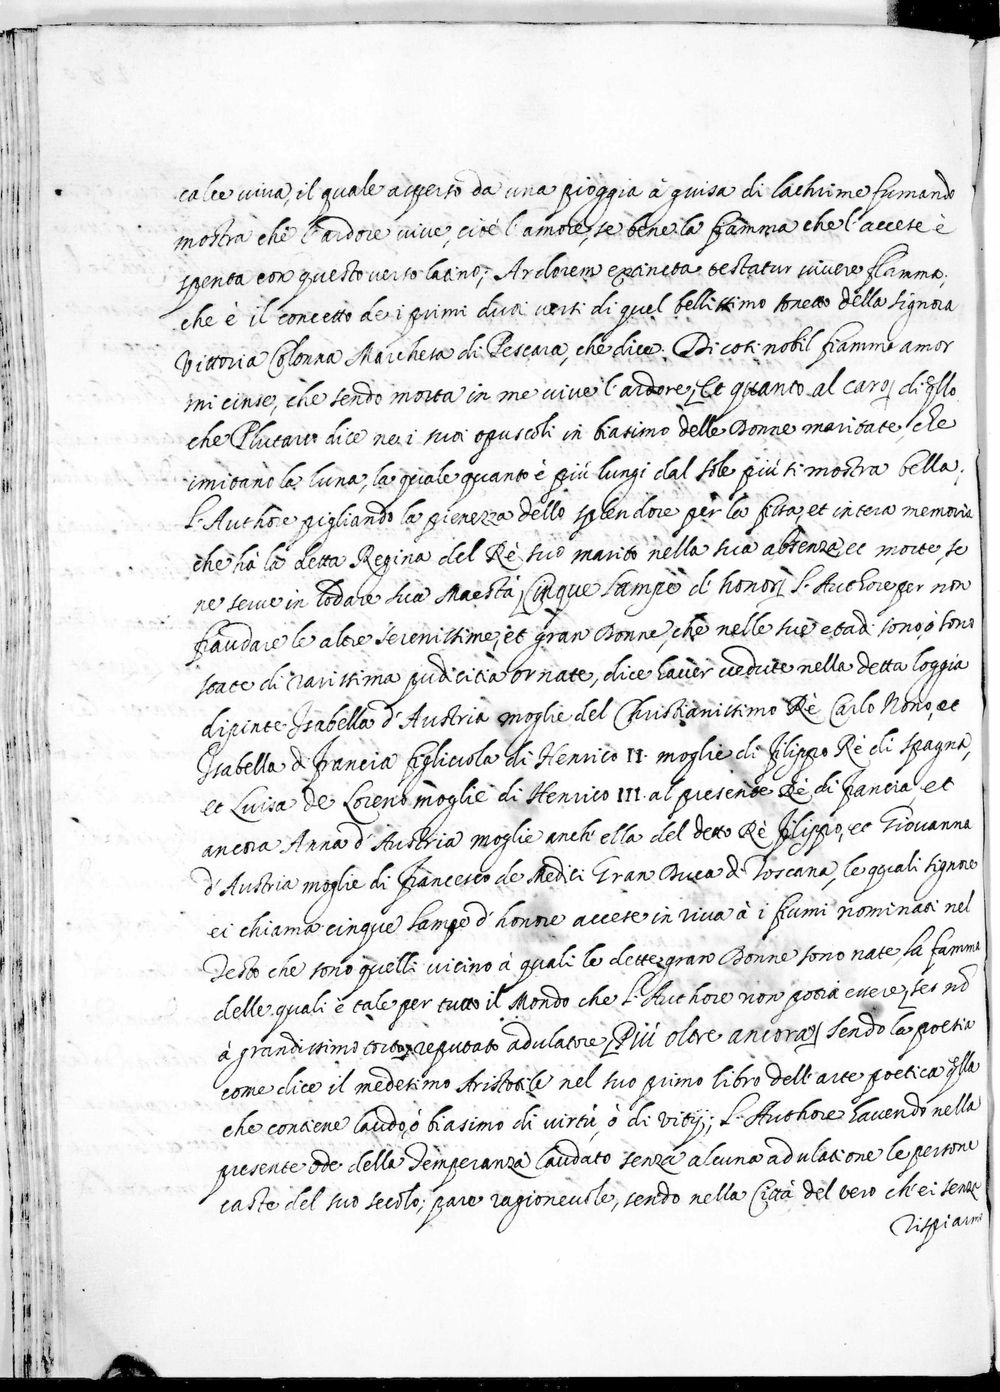 calce viva, il quale asperso da una pioggia à guisa di lachrime fumando
mostra che l'ardore vive, cioè l'amore, se bene la fiamma che l'accese è
spenta con questo verso latino; Ardorem extincta testatur vivere flamma;
che è il concetto de i primi duoi versi di quel bellissimo sonetto della signora
Vittoria Colonna Marchesa di Pescara, che dice. Di così nobil fiamma amor
mi cinse, che sendo morta in me vive l'ardore, Et quanto al caro, di qllo
che Plutarco dice ne i suoi opuscoli in biasimo delle Donne maritate, che
imitano la luna, la quale quanto è più lungi dal sole più si mostra bella;
L'Authore pigliando la pienezza dello splendore per la fissa, et intera memoria
che hà la detta Regina del Rè suo marito nella sua absenza, et morte, se
ne serve in lodare sua Maestà, Cinque lampe d'honor, L'Authore per non
fraudare le altre serenissime, et gran Donne, che nelle sue etadi sono, ò sono
state di rarissima pudicitia ornate, dice haver vedute nella detta loggia
dipinte Isabella d'Austria moglie del Christianissimo Rè Carlo Nono, et
Isabella di francia figliuola di Henrico II moglie di filippo Rè di spagna,
et Luisa de Loreno moglie di Henrico III al presente Rè di francia, et
ancora Anna d'Austria moglie anch'ella del detto Rè filippo, et Giovanna
d'Austria moglie di francesco de Medici Gran Duca di Toscana, le quali signore
ei chiama cinque lampe d'honore accese in riva à i fiumi nominati nel
Testo che sono quelli vicino à quali le dette gran Donne sono nate, la fama
delle quali è tale per tutto il Mondo che L'Authore non potrà essere, se nõ
à grandissimo torto reputato adulatore, Più oltre ancora, sendo la poesia
come dice il medesimo Aristotile nel suo primo libro dell'arte poetica qlla
che contiene laudo, ò biasimo di virtù, ò di vitij; L'Authore havendo nella
presente ode della Temperanza laudato senza alcuna adulatione le persone
caste del suo secolo; pare ragionevole, sendo nella Città del vero ch'ei senza
rispiarmo